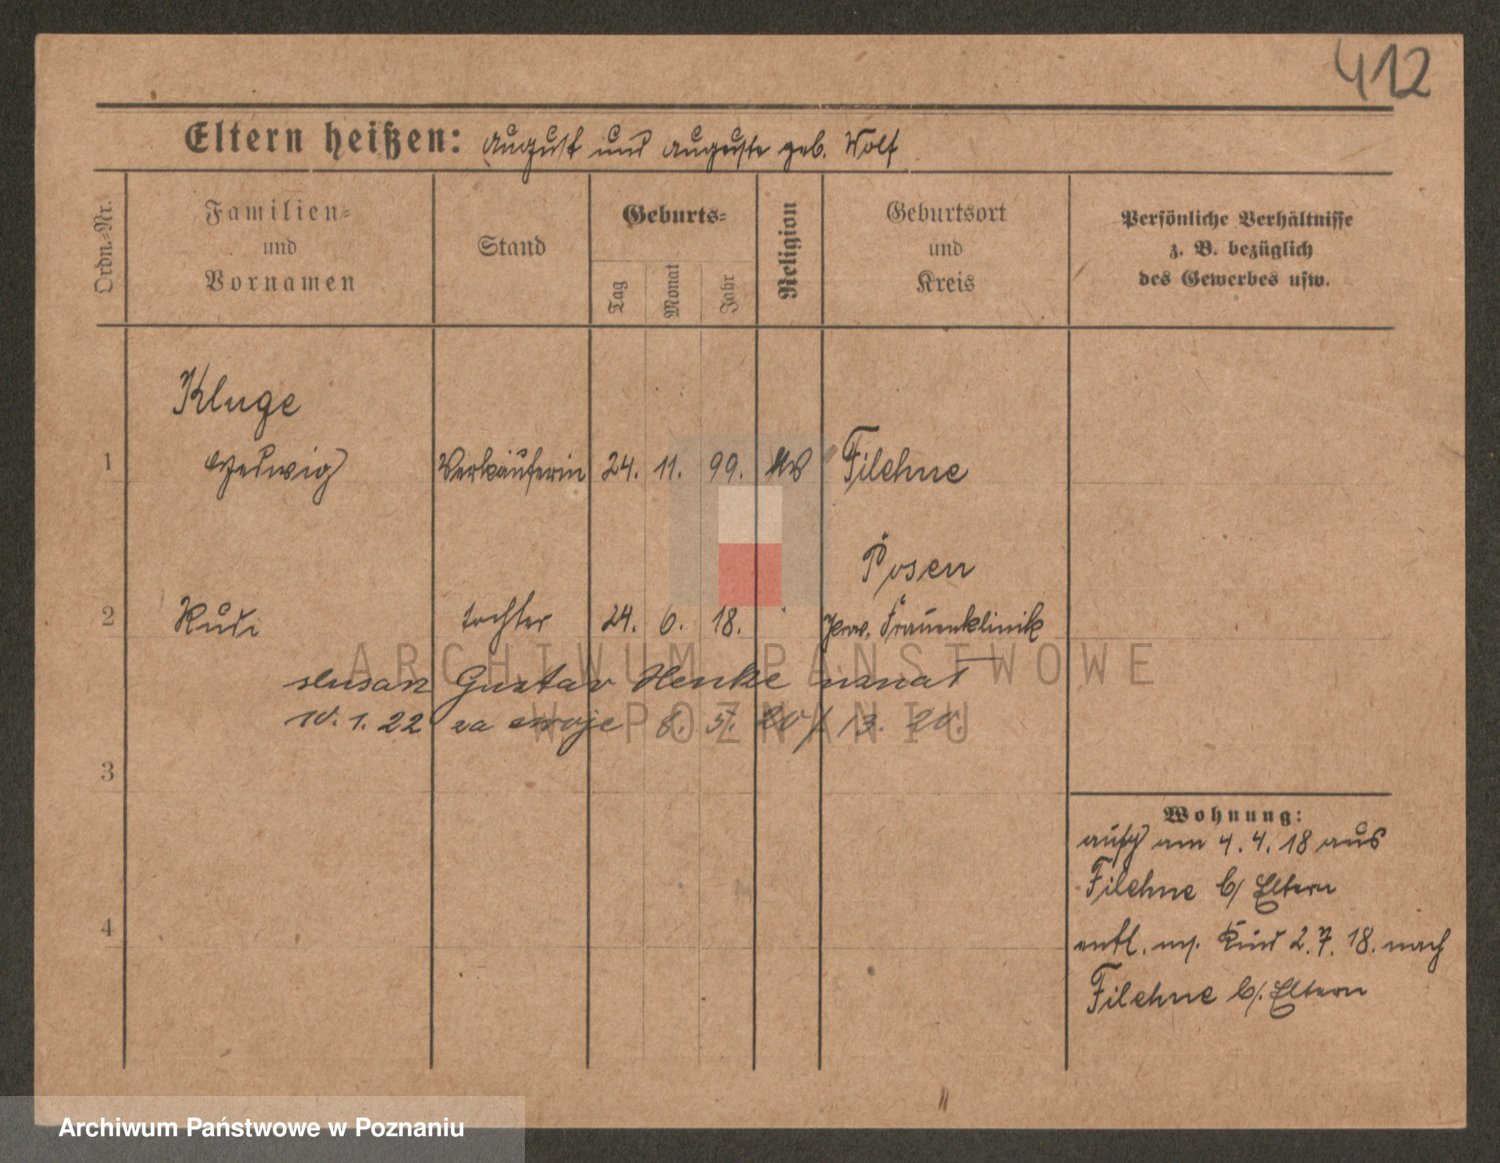 412
Eltern heißen: August und Auguste geb. Wolf
Ordn.-Nr.
Familien-
und
Vornamen
Stand
Geburts-
Tag
Monat
Jahr
Religion
Geburtsort
und
Kreis
Persönliche Verhältnisse
z. B. bezüglich
des Gewerbes usw.
Kluge
1 Hedwig Verkäuferin 24. 11. 99. Filehne
Posen
2 Rudi Tochter 24. 6. 18. Prov. Frauenklinik
ślusarz Gustav Henke uznał
10. 1. 22 za swoje 8. 5. 20/13. 20.
3
4
Wohnung:
aufg am 4. 4. 18 aus
Filehne b/ Eltern
entl. m. Kind 2. 7. 18. nach
Filehne b/. Eltern
ARCHIWUM PAŃSTWOWE
W POZNANIU
Archiwum Państwowe w Poznaniu